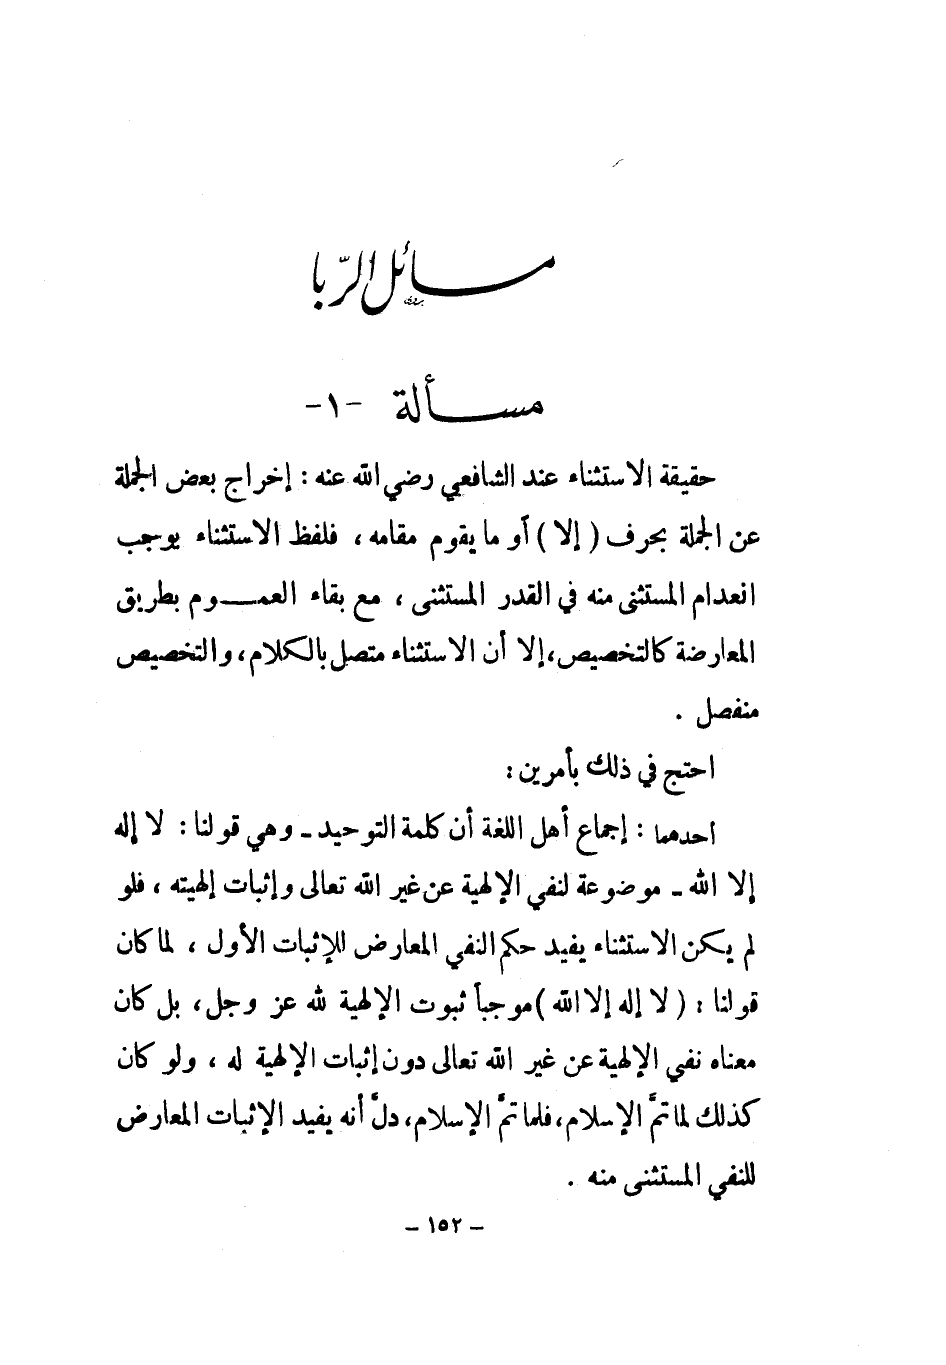 مسائل الربا
مسألة -١-
حقيقة الاستثناء عند الشافعي رضي الله عنه : إخراج بعض الجملة
عن الجملة بحرف ( إلا ) أو ما يقوم مقامه ، فلفظ الاستثناء يوجب
انعدام المستثنى منه في القدر المستثنى ، مع بقاء العموم بطريق
المعارضة كالتخصيص، إلا أن الاستثناء متصل بالكلام، والتخصيص
منفصل .
احتج في ذلك بأمرين :
أحدهما : إجماع أهل اللغة أن كلمة التوحيد ـ وهي قولنا : لا إله
إلا الله ـ موضوعة لنفي الإلهية عن غير الله تعالى وإثبات إلهيته ، فلو
لم يكن الاستثناء يفيد حكم النفي المعارض للإثبات الأول ، لما كان
قولنا : ( لا إله إلا الله ) موجباً ثبوت الإلهية لله عز وجل ، بل كان
معناه نفي الإلهية عن غير الله تعالى دون إثبات الإلهية له ، ولو كان
كذلك لما تمَّ الإسلام، فلما تمَّ الإسلام، دلَّ أنه يفيد الإثبات المعارض
للنفي المستثنى منه .
- ١٥٢ -